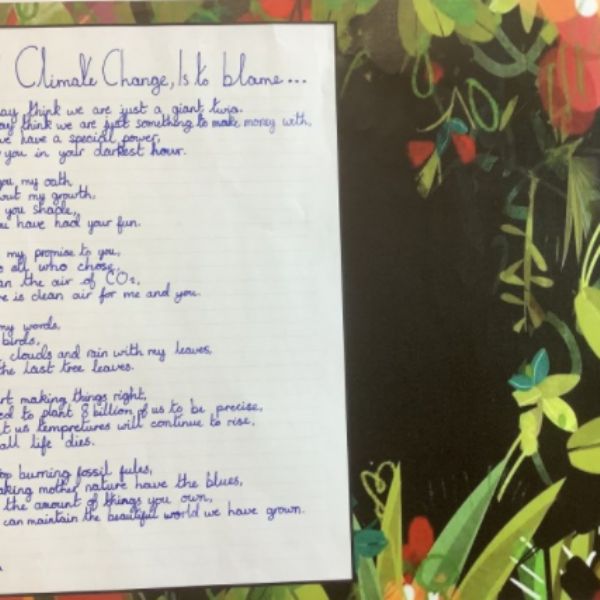 Climate Change, Is to blame...
ay think we are just a giant twig.
ay think we are just something to make money with,
we have a special power,
you in your darkest hour.
you my oath,
out my growth,
you shade,
u have had your fun.
my promise to you,
o all who chose,
an the air of CO2,
re is clean air for me and you.
my words,
birds,
clouds and rain with my leaves,
the last tree leaves.
rt making things right,
ed to plant 8 billion of us to be precise,
t us tempretures will continue to rise,
all life dies.
op burning fossil fules,
aking mother nature have the blues,
the amount of things you own,
can maintain the beautiful world we have grown.